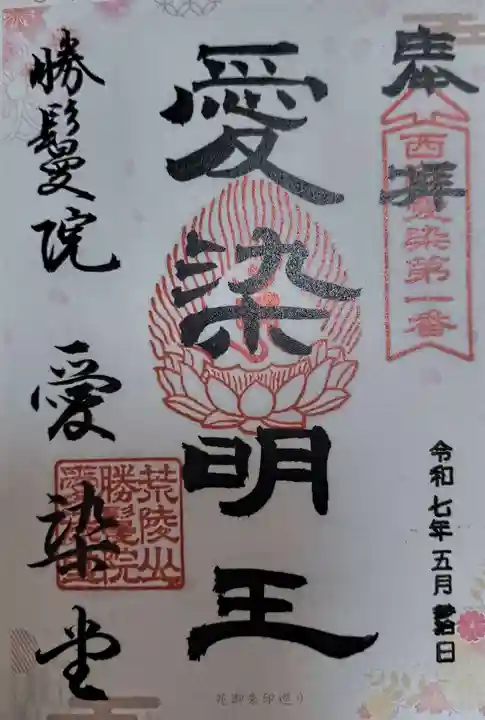 奉拝
西国愛染第一番
令和七年五月 日
愛染明王
勝鬘院 愛染堂
荒陵山
勝鬘院
愛染堂
花御朱印巡り